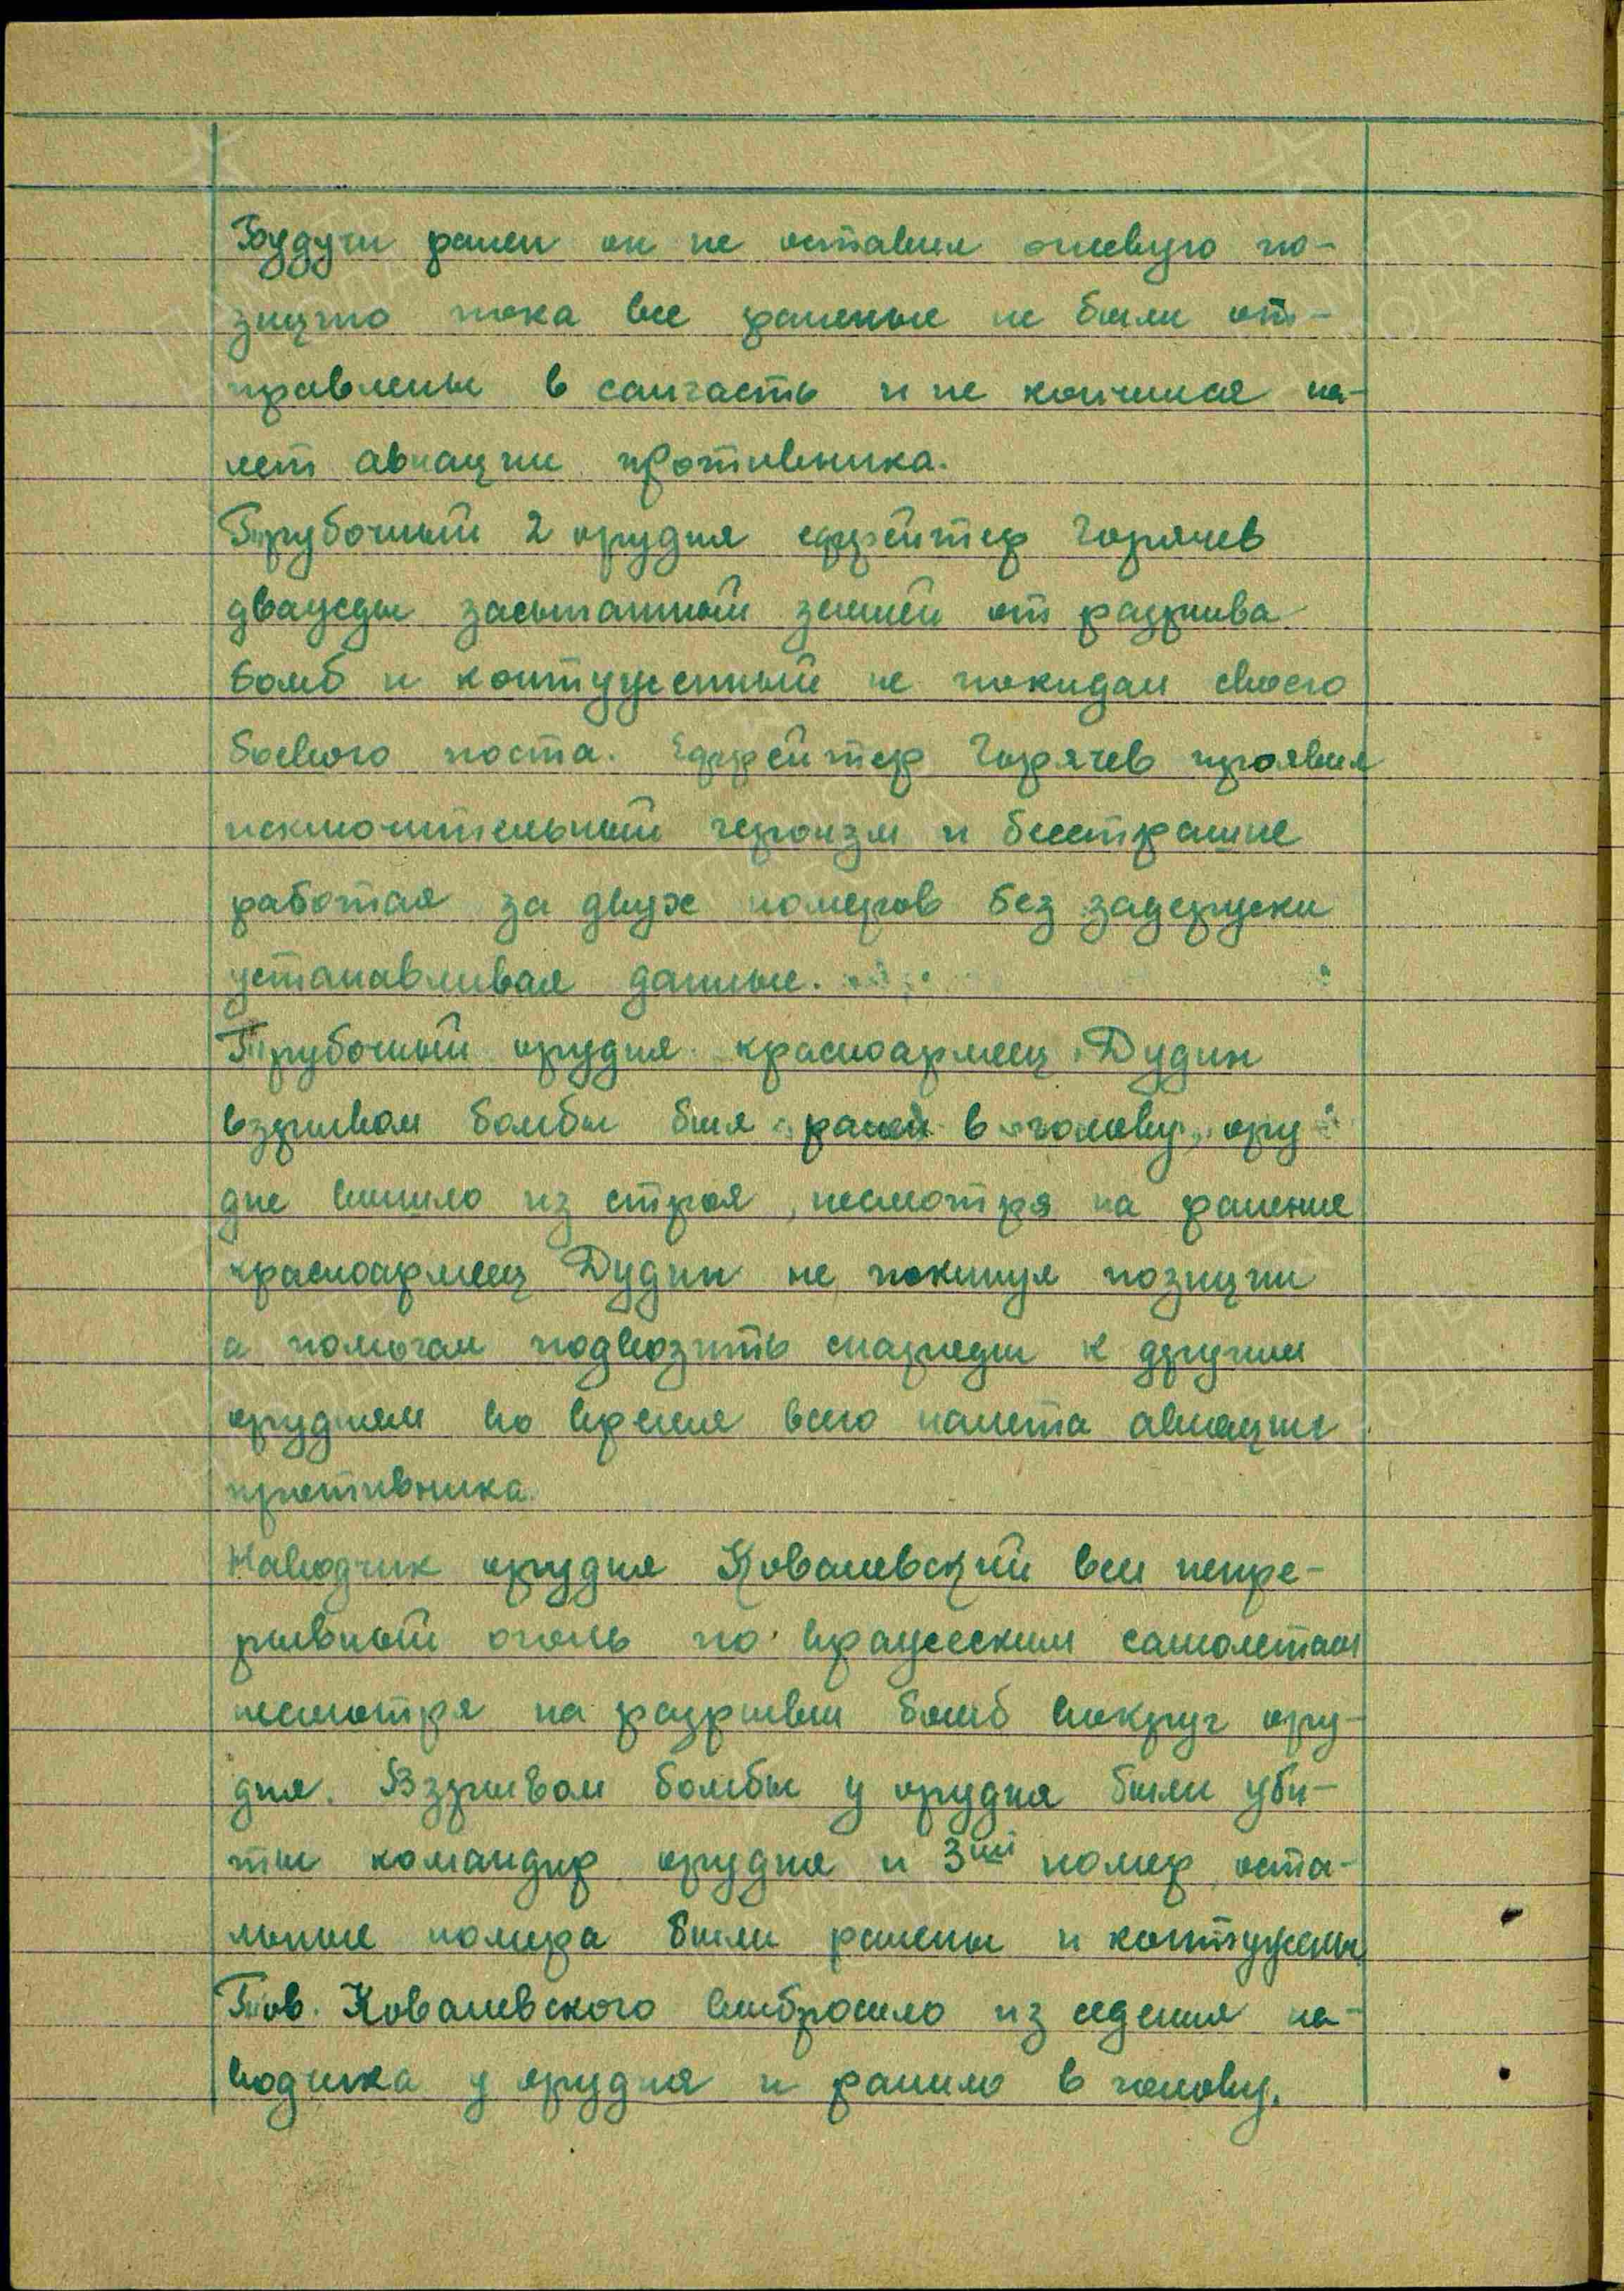 Будучи ранен он не оставил огневую по-
зицию пока все раненые не были от-
правлены в санчасть и не кончился на-
лет авиации противника.
Трубочный 2 орудия ефрейтор Горячев
дважды засыпанный землей от разрыва
бомб и контуженный не покидал своего
боевого поста. Ефрейтор Горячев проявил
исключительный героизм и бесстрашие
работая за двух номеров без задержки
устанавливая данные.
Трубочный орудия красноармеец Дудин
взрывом бомбы был ранен в голову, ору
дие вышло из строя, несмотря на ранение
красноармеец Дудин не покинул позиции
а помогал подвозить снаряды к другим
орудиям во время всего налета авиации
противника.
Наводчик орудия Ковалевский вел непре-
рывный огонь по вражеским самолетам
несмотря на разрывы бомб вокруг ору-
дия. Взрывом бомбы у орудия были уби-
ты командир орудия и 3ий номер, оста-
льные номера были ранены и контужены
Тов. Ковалевского выбросило из седения на-
водчика у орудия и ранило в голову.
ПАМЯТЬ НАРОДА